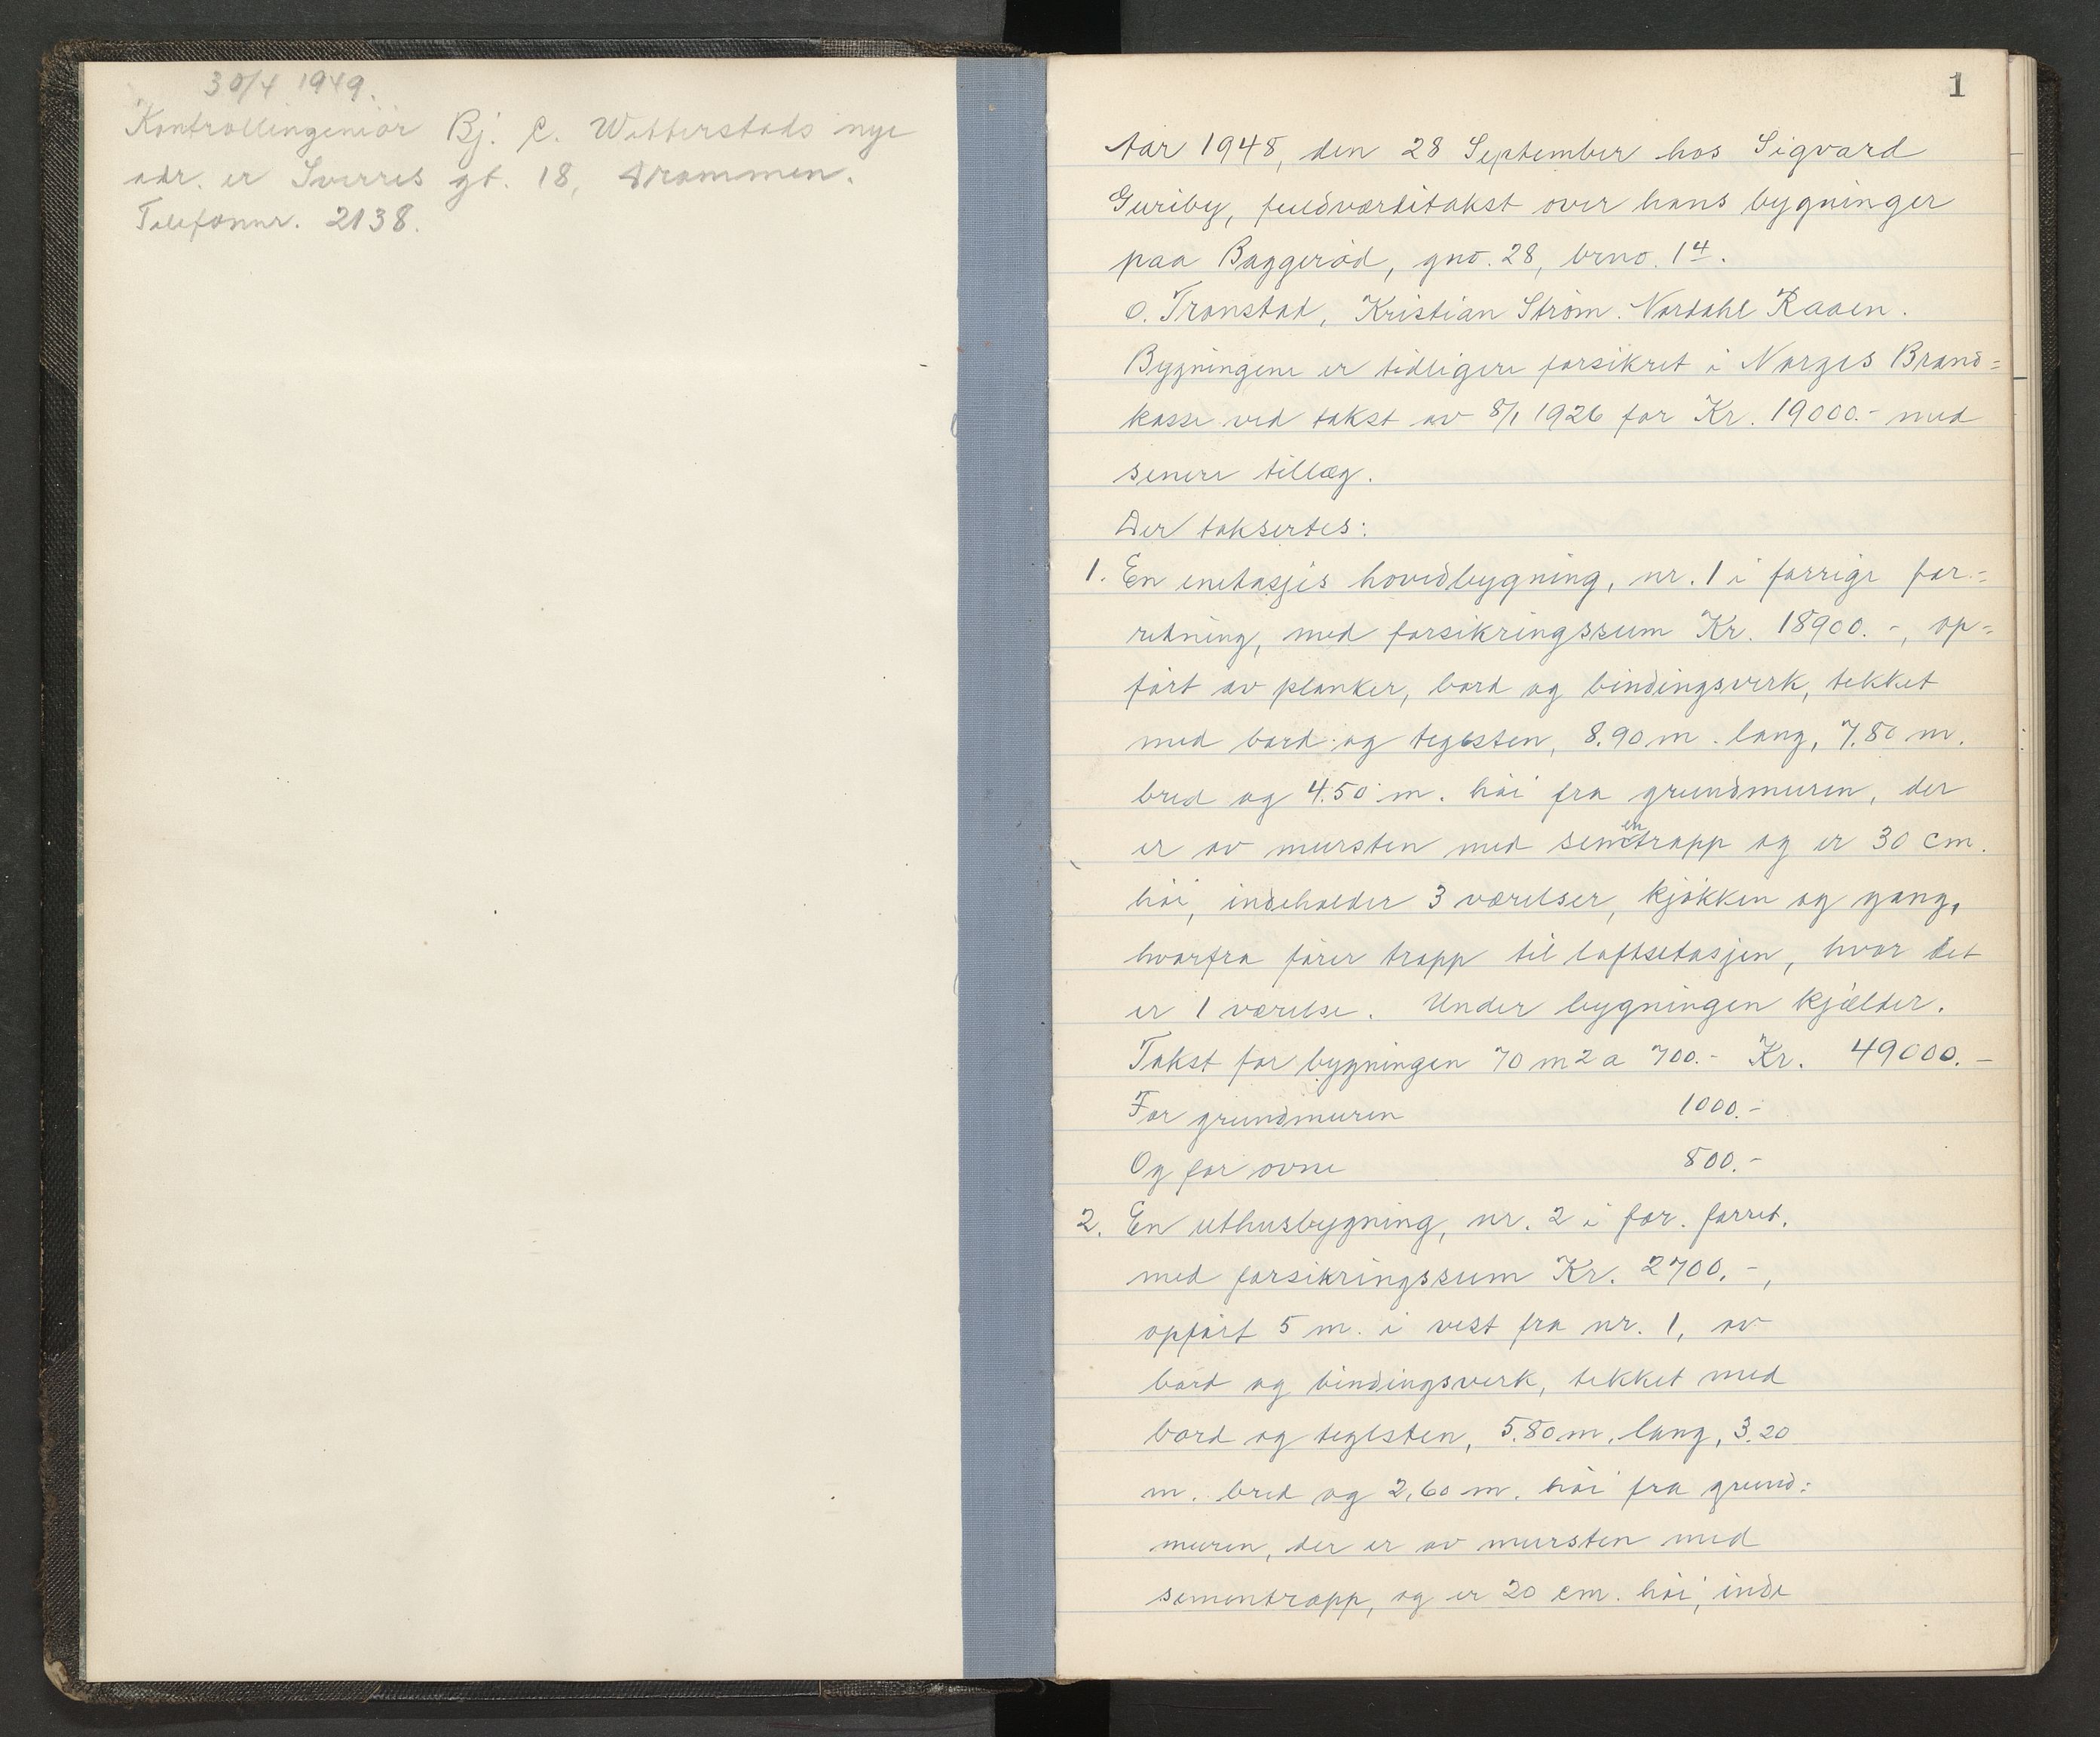 30/4 1949.
Kontrollingeniør Bj. C. Wetterstads nye
adr. er Sverres gt. 18, Drammen.
Telefonnr. 2138.
1
Aar 1948, den 28 September hos Sigvard
Guriby, fuldværditakst over hans bygninger
paa Baggerød, gno. 28, brno. 14.
O. Tronstad, Kristian Strøm. Nordahl Raaen.
Bygningene er tidligere forsikret i Norges Brand=
kasse ved takst av 8/1 1926 for Kr. 19000.- med
senere tillæg.
Der taksertes:
1. En enetasjes hovedbygning, nr. 1 i forrige for=
retning, med forsikringssum Kr. 18900.-, op=
ført av planker, bord og bindingsverk, tekket
med bord og teglsten, 8.90 m. lang, 7.80 m.
bred og 4.50 m. høi fra grundmuren, der
er av mursten med sementrapp og er 30 cm.
høi, indeholder 3 værelser, kjøkken og gang,
hvorfra fører trapp til loftsetasjen, hvor det
er 1 værelse. Under bygningen kjælder.
Takst for bygningen 70 m2 a 700.- Kr. 49000.-
For grundmuren 1000.-
Og for ovne 800.-
2. En uthusbygning, nr. 2 i for. forret.
med forsikringssum Kr. 2700.-,
opført 5 m. i vest fra nr. 1, av
bord og bindingsverk, tekket med
bord og teglsten, 5.80 m. lang, 3.20
m. bred og 2.60 m. høi fra grund=
muren, der er av mursten med
sementrapp, og er 20 cm. høi, inde